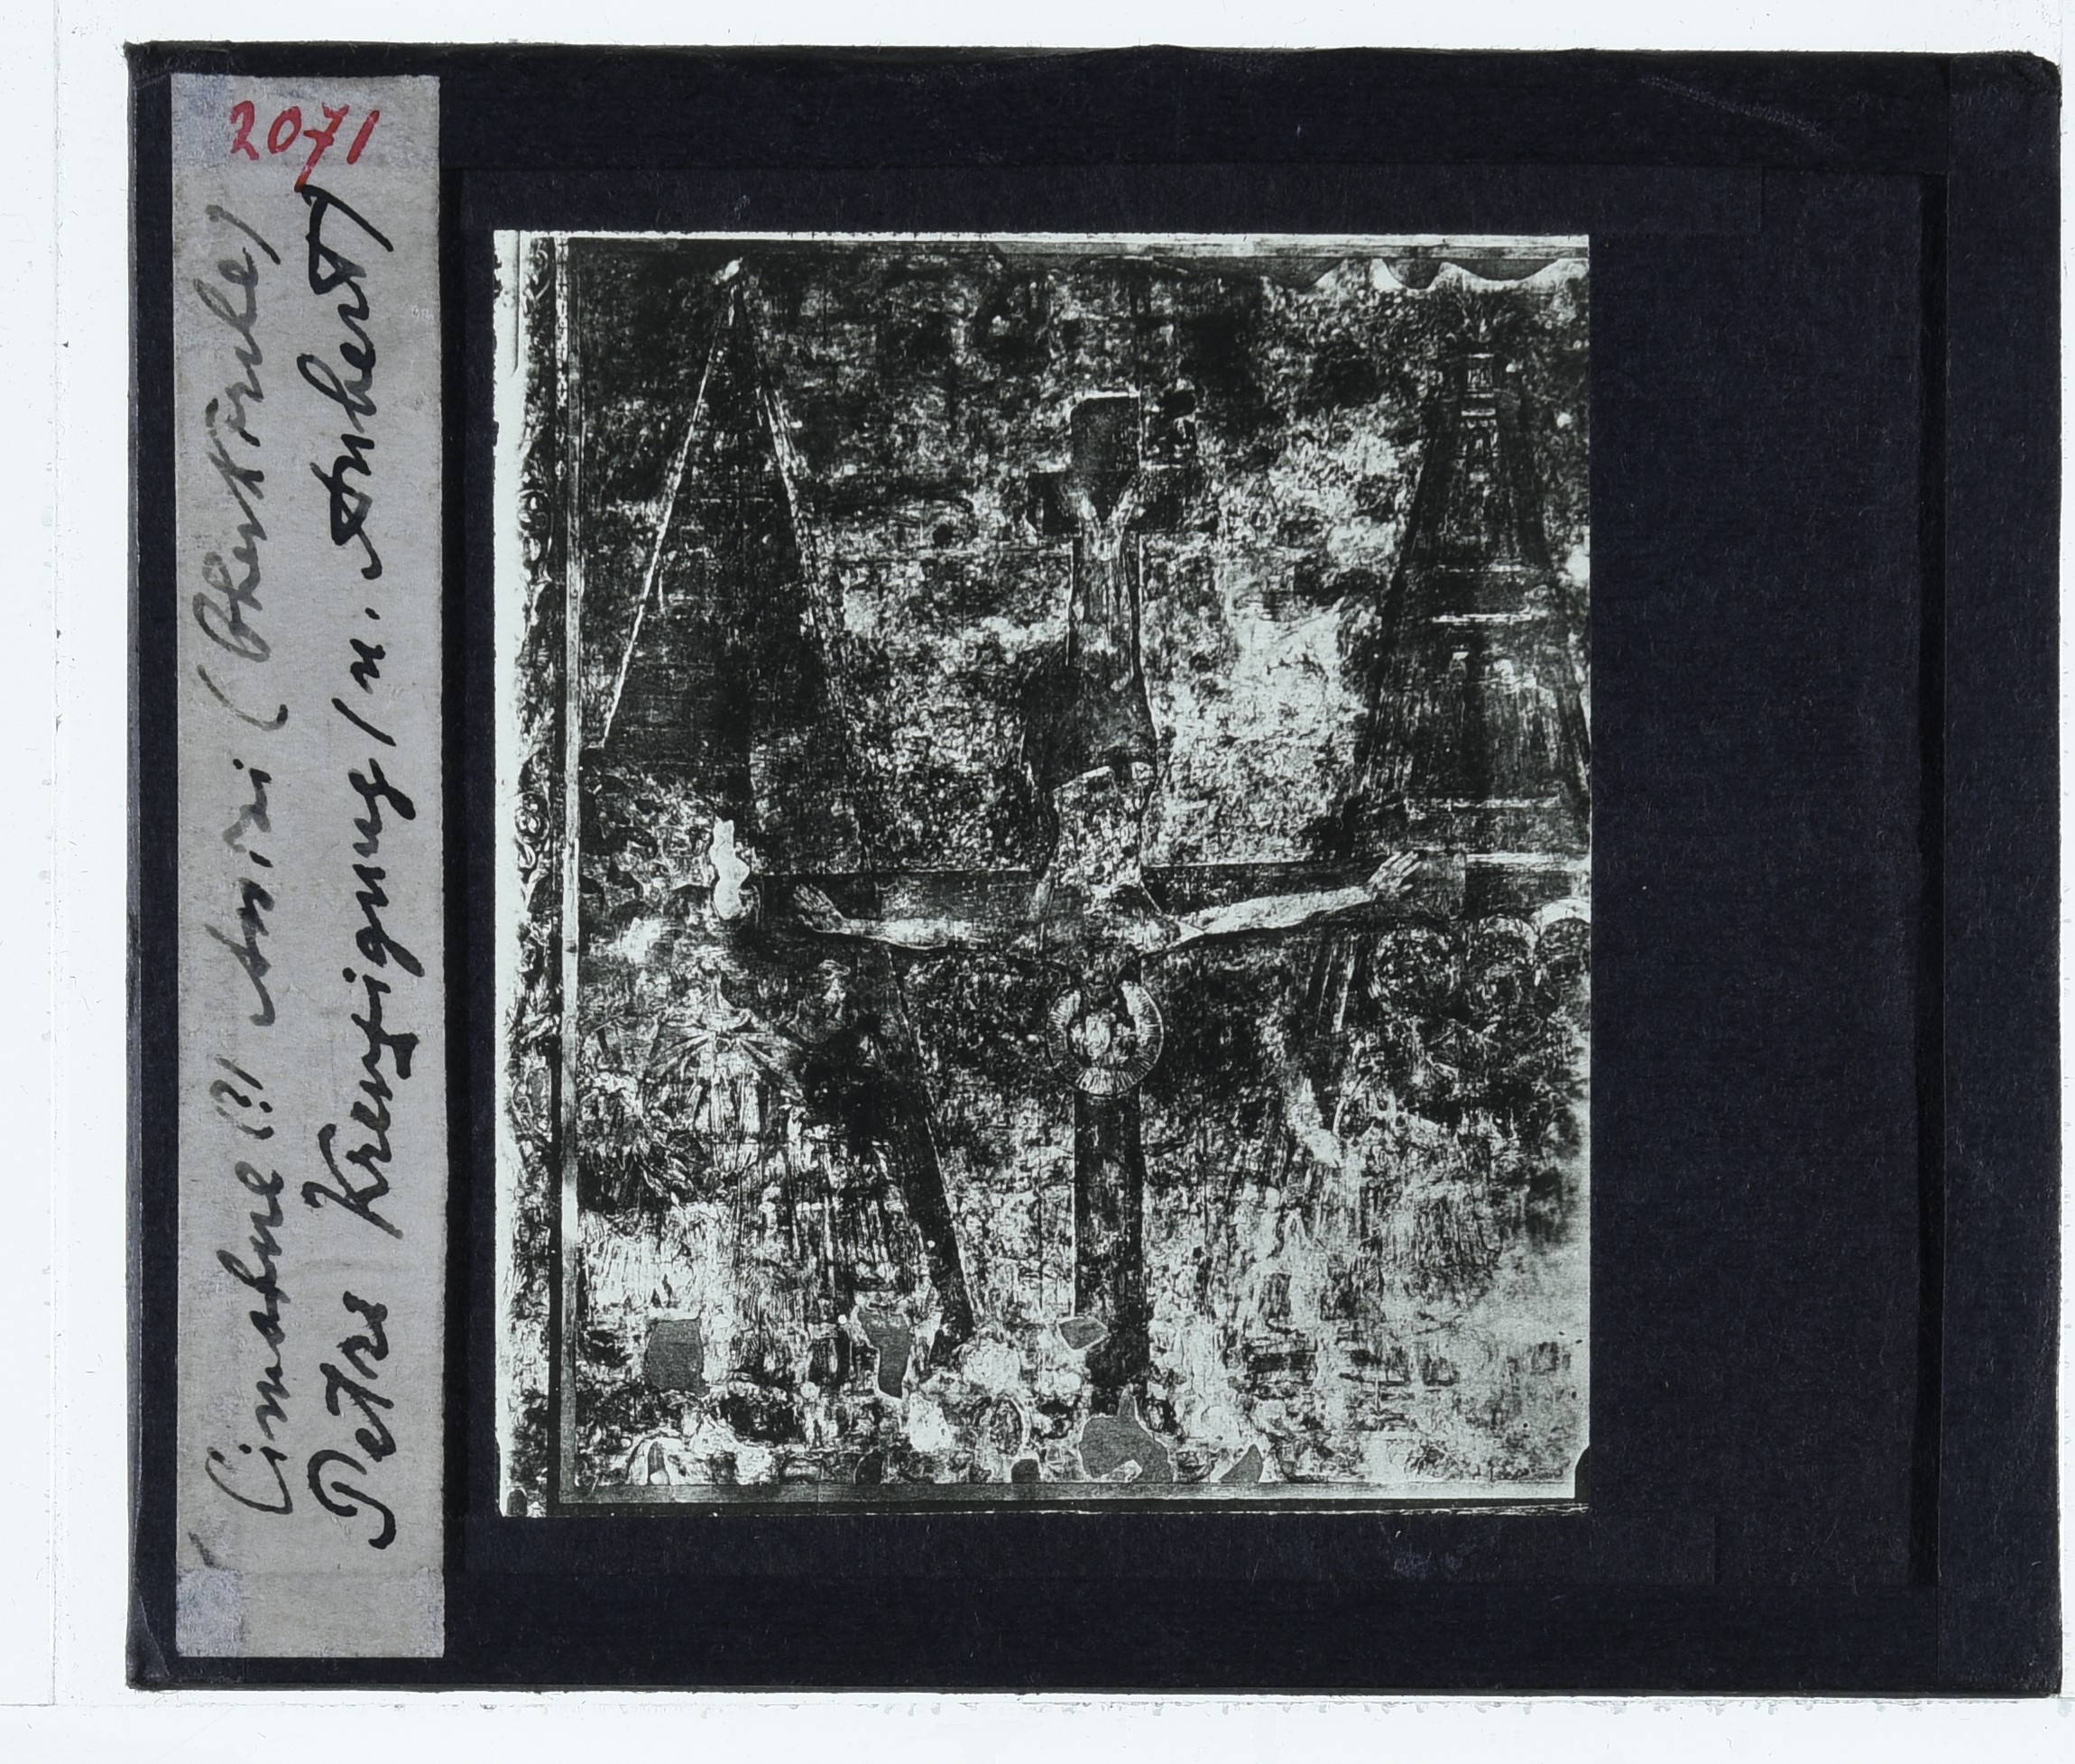 2071
Cimabue (?) Assisi (Oberkirche)
Petri Kreuzigung (n. Aubert)